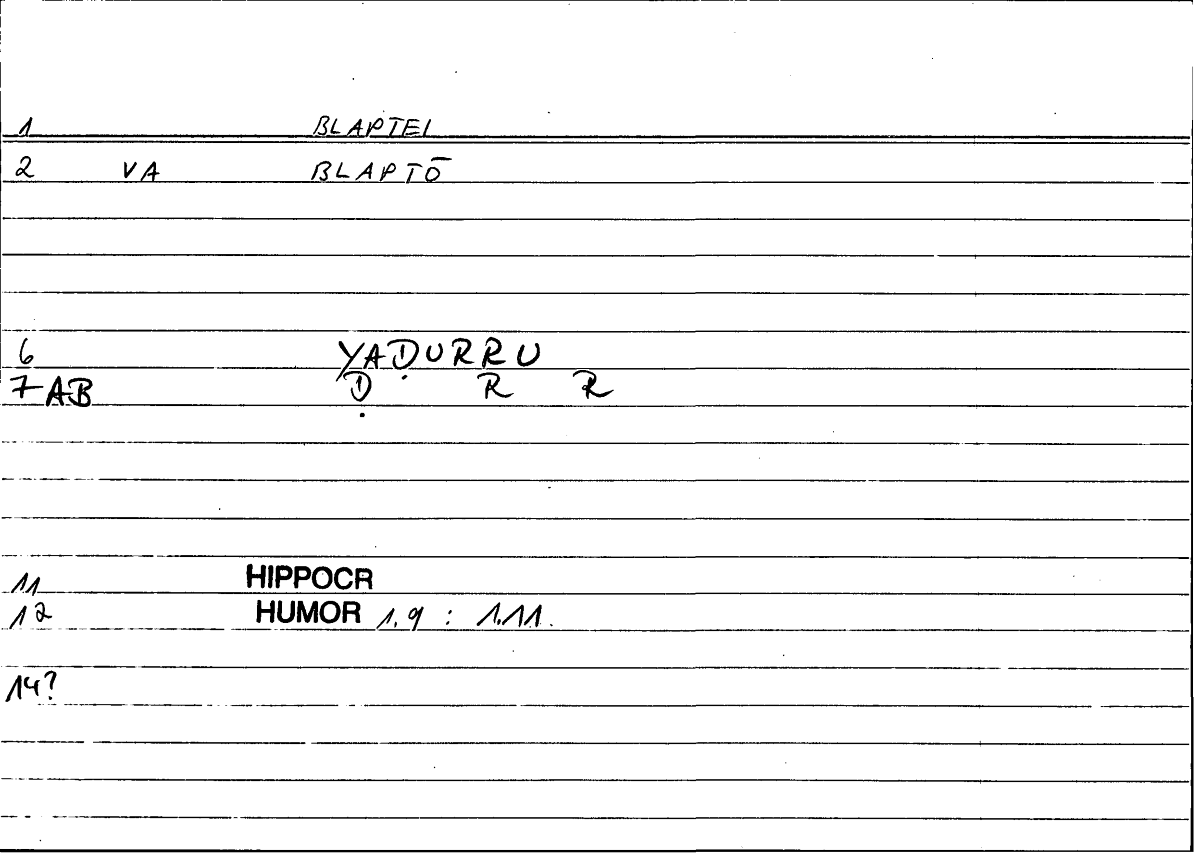 1 BLAPTEI
2 VA BLAPTŌ
6 YAḌURRU
7 AB Ḍ R R
11 HIPPOCR
12 HUMOR 1,9 : 1.11.
14?